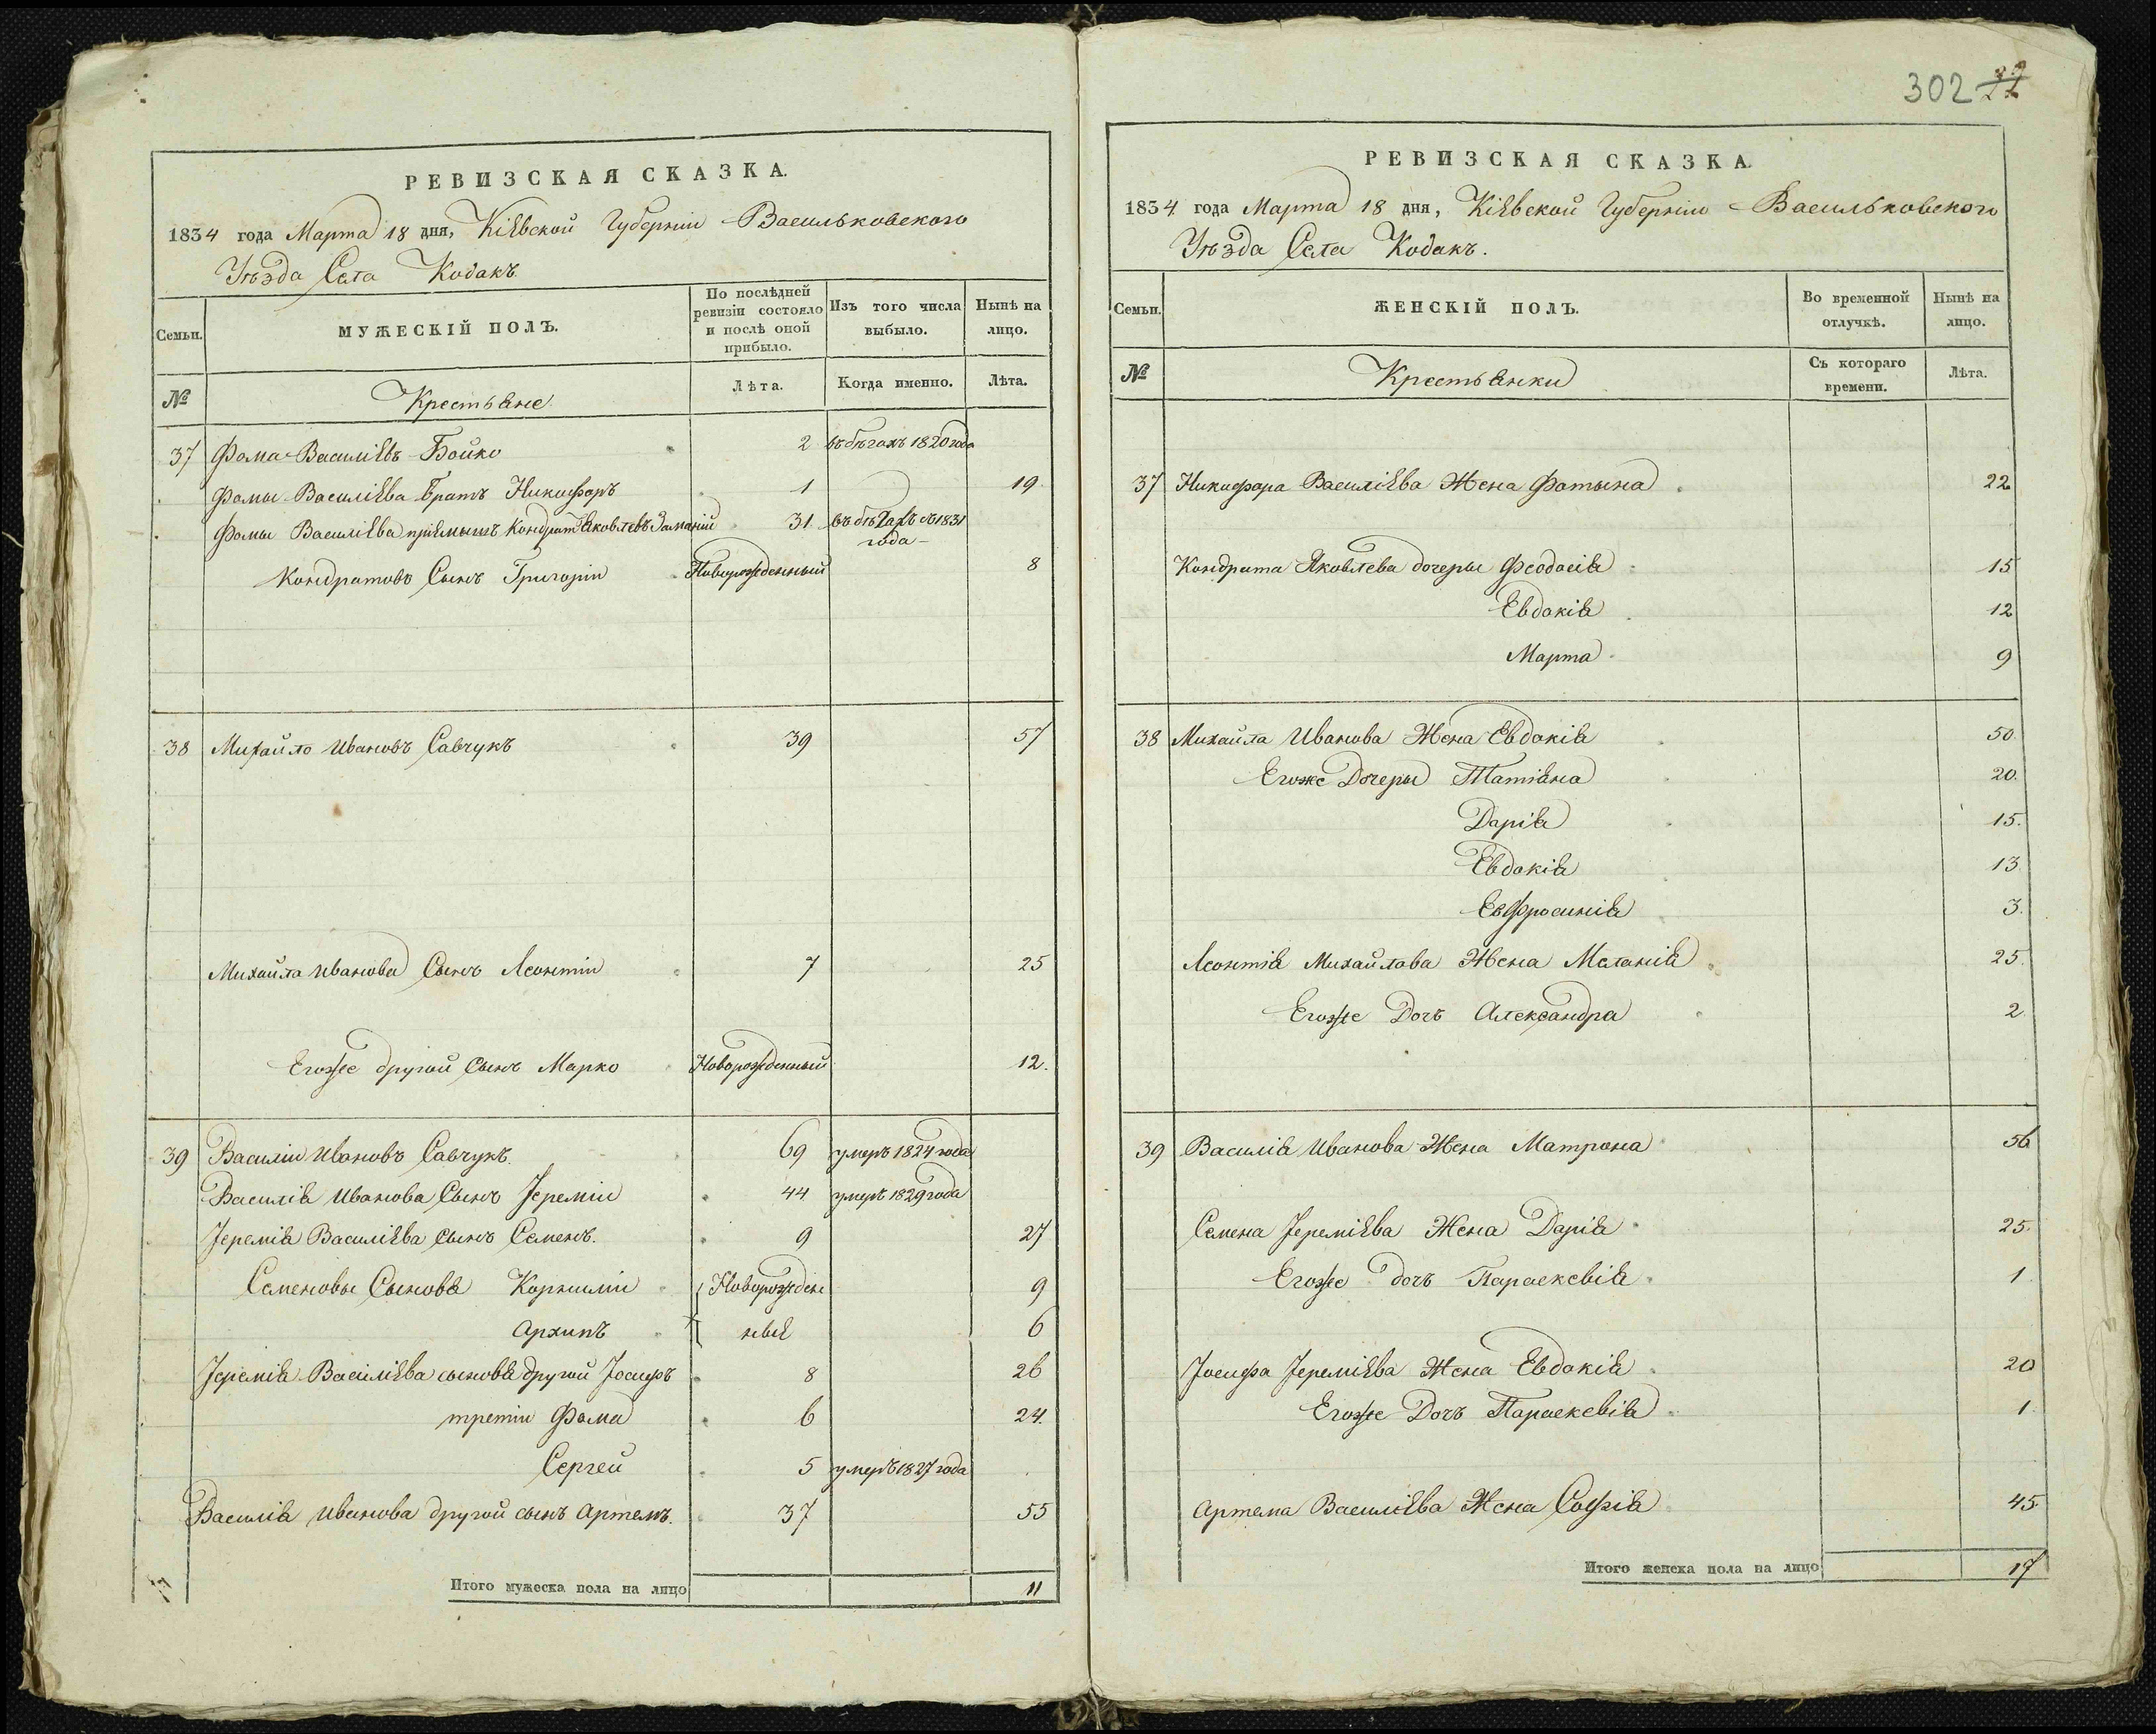 РЕВИЗСКАЯ СКАЗКА.
1834 года Марта 18 дня, Кіевской Губерніи Васильковскаго
Уѣзда Села Кодакъ.
Семьи.
МУЖЕСКІЙ ПОЛЪ.
По послѣдней ревизіи состояло и послѣ оной прибыло.
Изъ того числа выбыло.
Нынѣ на лицо.
№
Крестьяне
Лѣта.
Когда именно.
Лѣта.
37 Фома Василіевъ Бойко 2 въ бѣгахъ 1820 года
Фомы Василіева братъ Никифоръ 1 19
Фомы Василіева пріемышъ Кондратъ Яковлевъ 31 въ бѣгахъ съ 1831
года
Кондратовъ Сынъ Григоріи Новорожденный 8
38 Михайло Ивановъ Савчукъ 39 57
Михайла Иванова Сынъ Леонтіи 7 25
Егоже другой Сынъ Марко Новорожденный 12.
39 Василіи Ивановъ Савчукъ. 69 умеръ 1824 года
Василія Иванова Сынъ Іереміи 44 умеръ 1829 года
Іеремія Василіева сынъ Семенъ. 9 27
Семеновы Сыновя Корниліи Новорожден 9
Архипъ ные 6
Іеремія Василіева сыновя другой Іосифъ 8 26
третіи Фома 6 24.
Сергей 5 умеръ 1827 года
Василія Иванова другой сынъ Артемъ. 37 55
Итого мужеска пола на лицо 11
302 22
РЕВИЗСКАЯ СКАЗКА.
1834 года Марта 18 дня, Кіевской Губерніи Васильковского
Уѣзда Села Кодакъ.
Семьи.
ЖЕНСКІЙ ПОЛЪ.
Во временной отлучкѣ.
Нынѣ на лицо.
№
Крестьянки
Съ котораго времени.
Лѣта.
37 Никифора Василіева Жена Фотына 22
Кондрата Яковлева дочеры Феодосія 15
Евдокія 12
Марта 9
38 Михайла Иванова Жена Евдокія 50.
Егоже Дочеры Татіяна 20.
Дарія 15.
Евдокія 13
Евфросинія 3.
Леонтія Михайлова Жена Меланія 25.
Егоже Дочъ Александра 2.
39 Василія Иванова Жена Матрона 56
Семена Іереміева Жена Дарія 25.
Егоже дочъ Параскевія 1
Іосифа Іереміева Жена Евдокія 20
Егоже Дочъ Параскевія 1.
Артема Василіева Жена Софія 45.
Итого женска пола на лицо 17